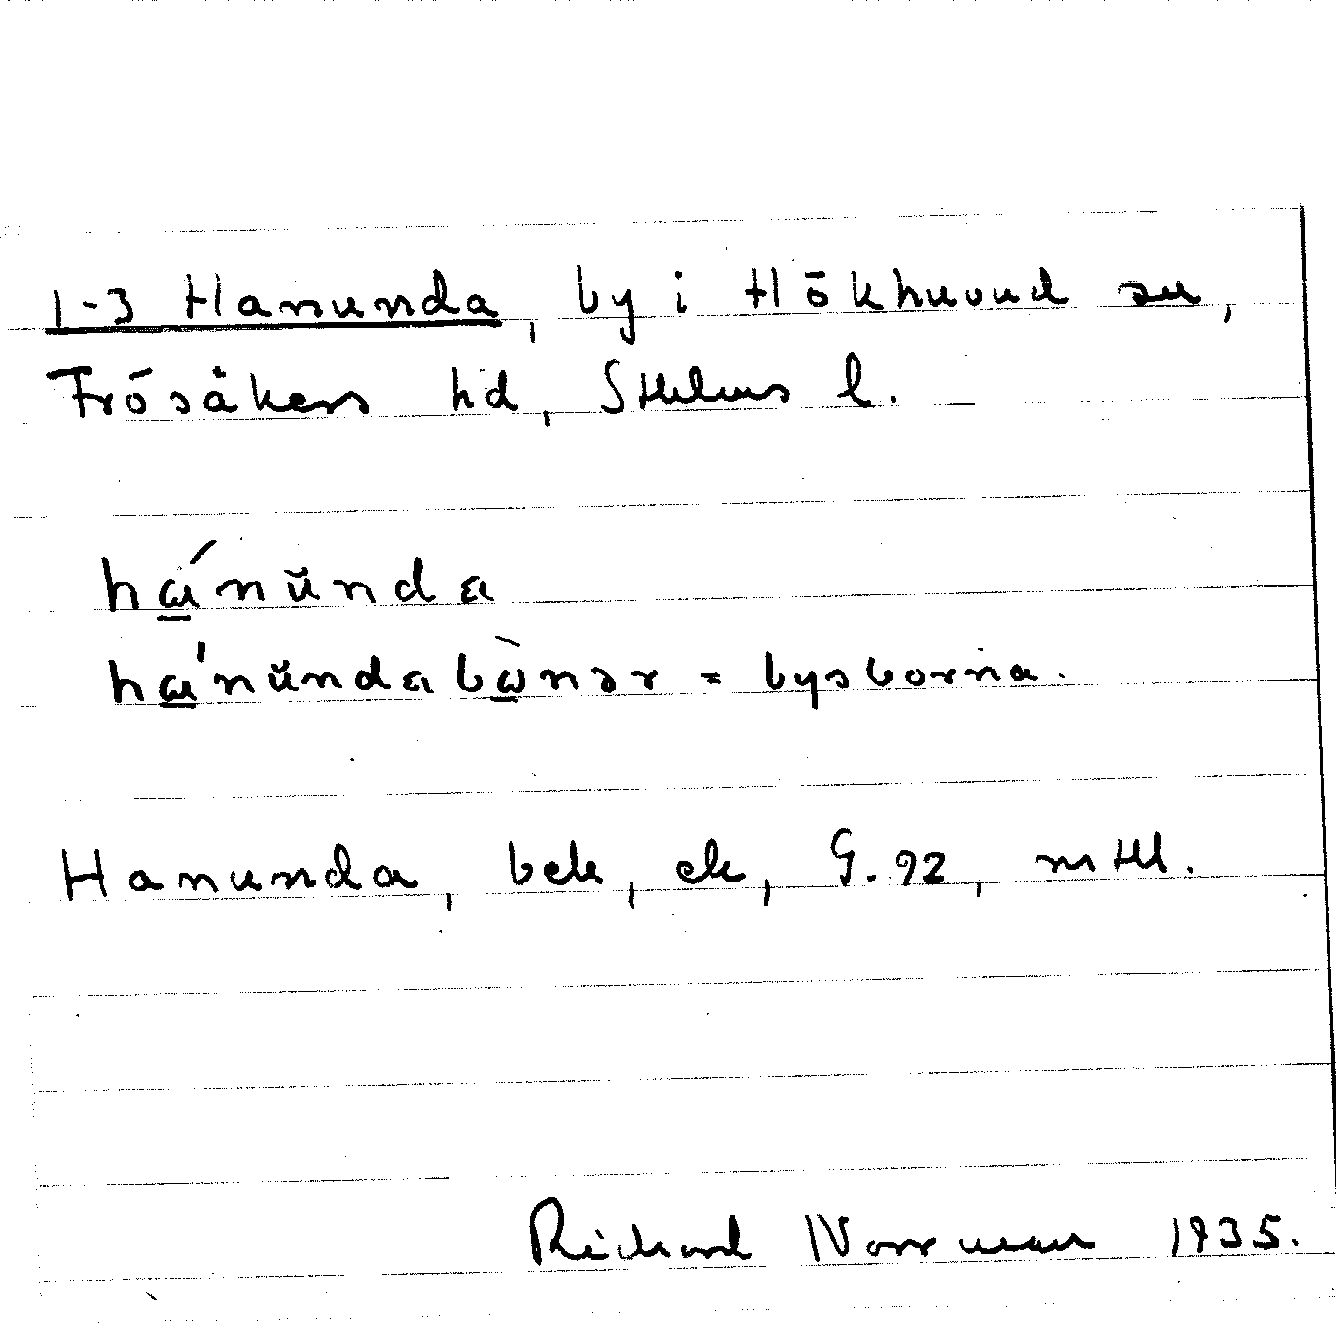 1-3 Hanunda, by i Hökhuvud sn,
Frösåkers hd, Sthlms l.
há̱nŭnda
há̱nŭndabὼ̱nər = bysborna.
Hanunda, bek, ek, G. 92, mtl.
Rickard Norrman 1935.